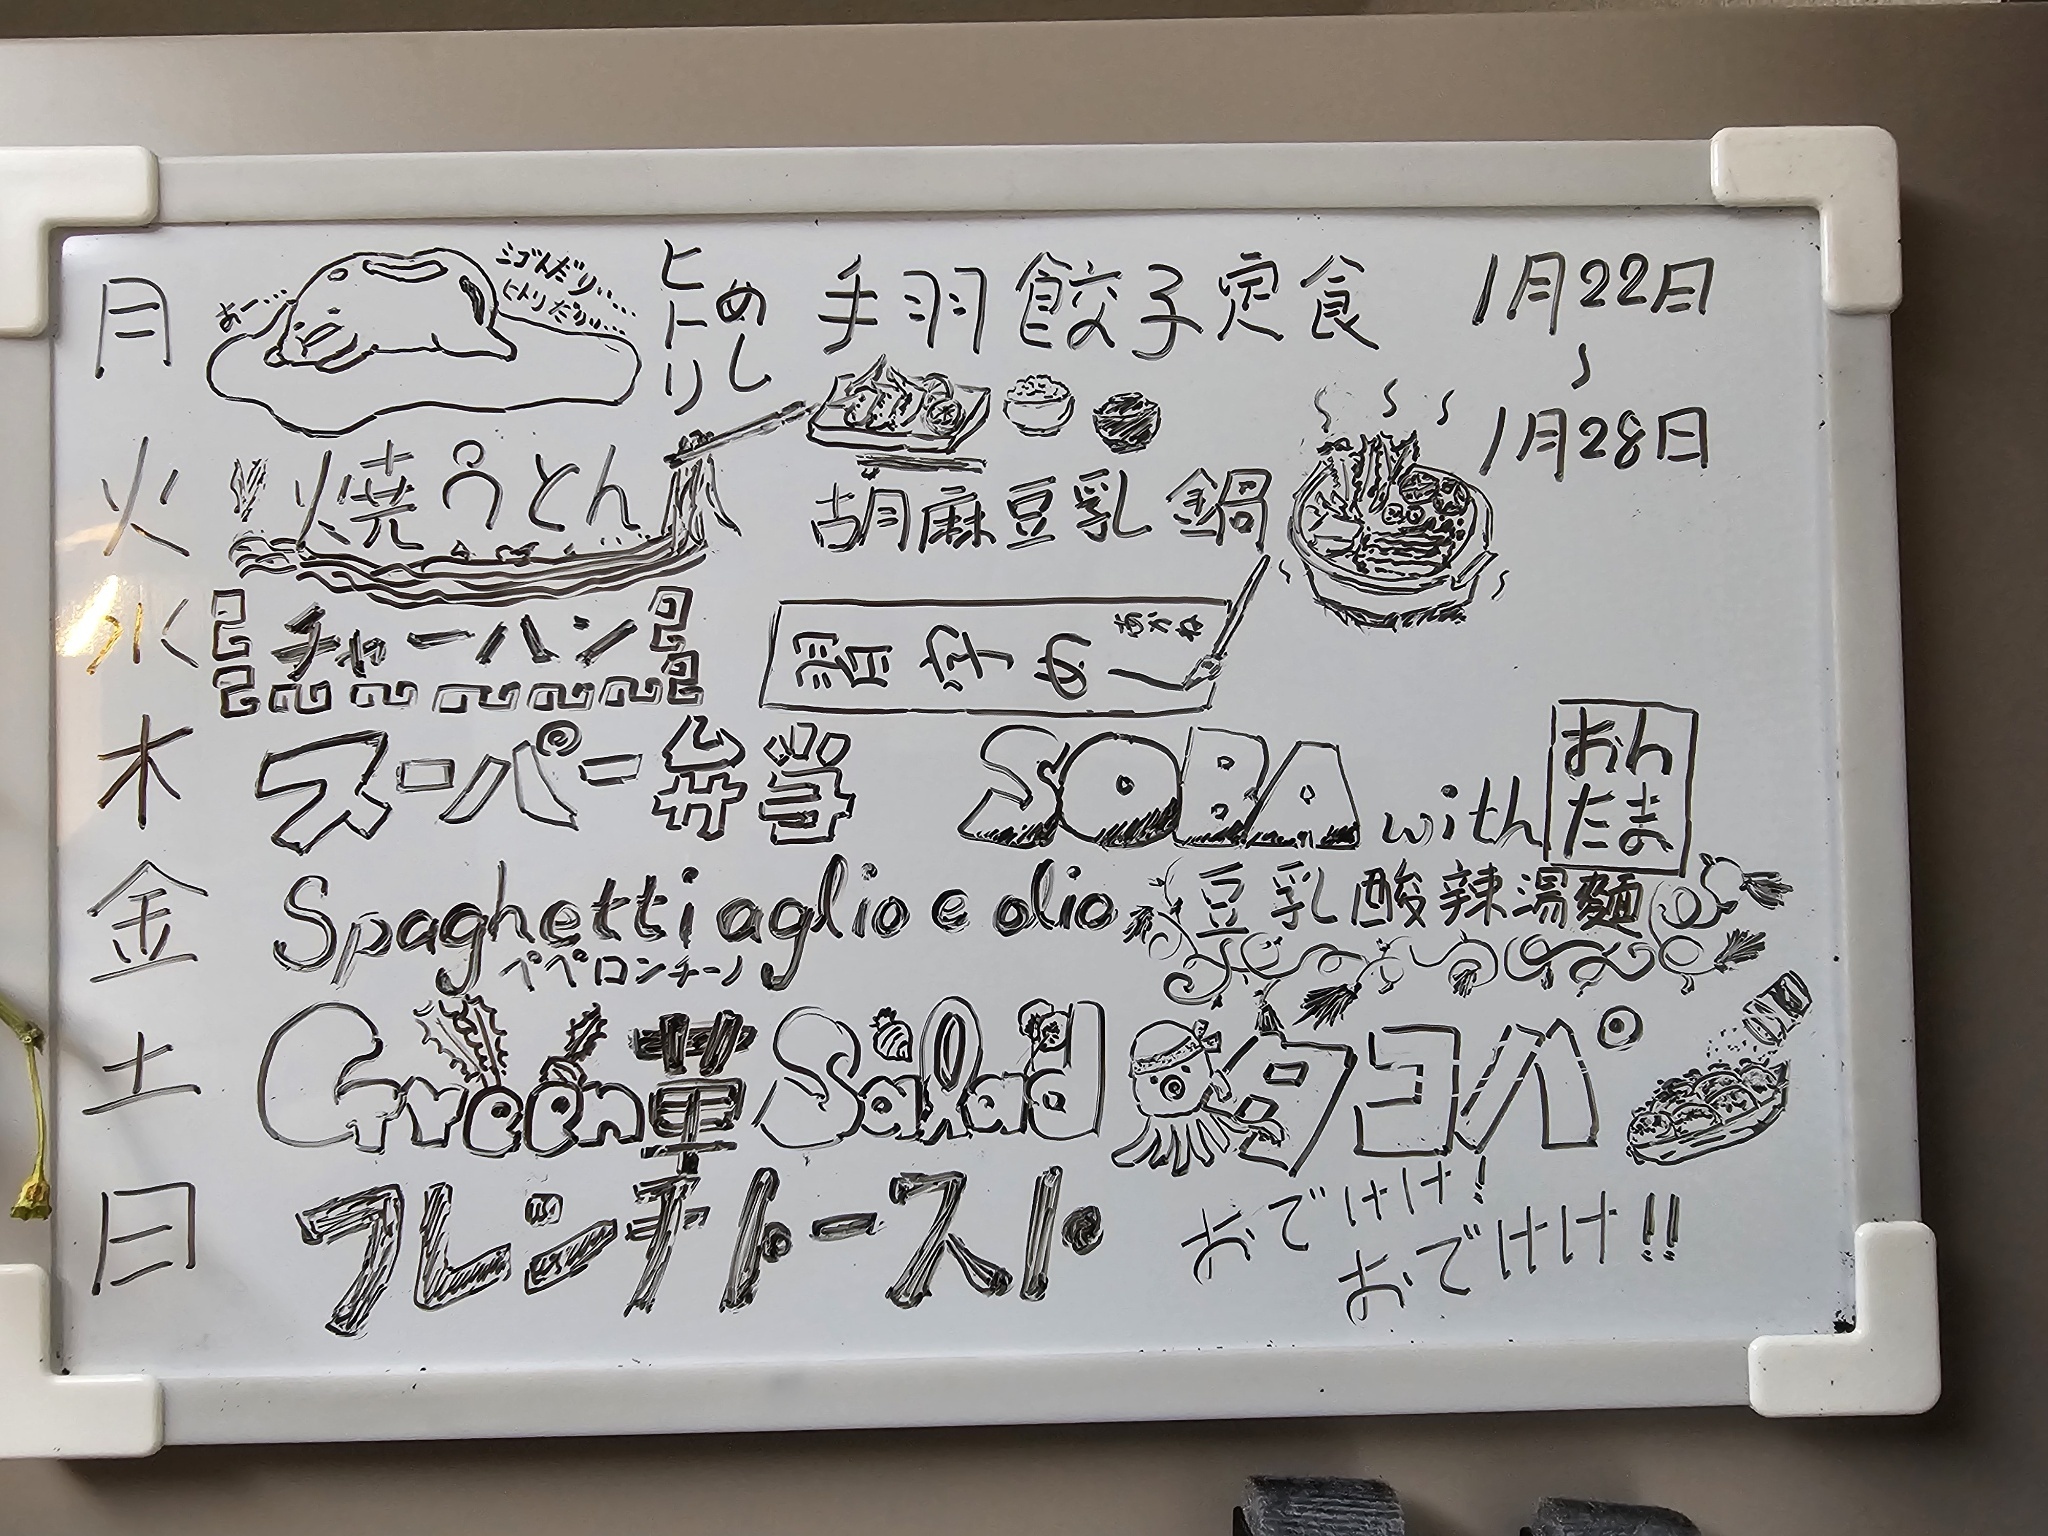 月 あー… シゴトだり…… ヒトリだり…… ヒトリ めし 手羽餃子定食 1月22日
〜
1月28日
火 焼うどん 胡麻豆乳鍋
水 チャーハン 習字めし あかね
木 スーパー弁当 SOBA with おんたま
金 Spaghetti aglio e olio 豆乳酸辣湯麺
ペペロンチーノ
土 Green菫Salad タコパ
日 フレンチトースト おでけけ! おでけけ!!